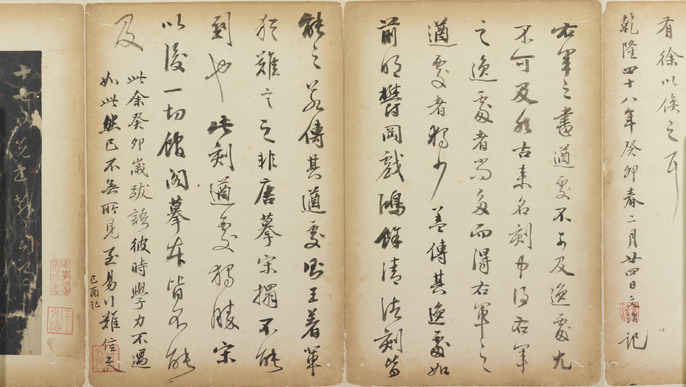 有徐以俟之耳
乾隆四十八年癸卯春二月廿四日文治記
右軍之書遒處不可及逸處尤
不可及然古來名刻中得右軍
之逸處者尚多而得右軍之
遒處者獨少蓋傳其逸處如
前明鬱岡戲鴻餘清諸刻皆
能之若傳其遒處則王著輩
猶難言之非唐摹宋搨不能
到也此刻遒處獨勝宋
以後一切館閣摹本皆不能
及
此余癸卯歲跋語彼時學力不過
如此然已不無所見至易川難信矣
己酉記